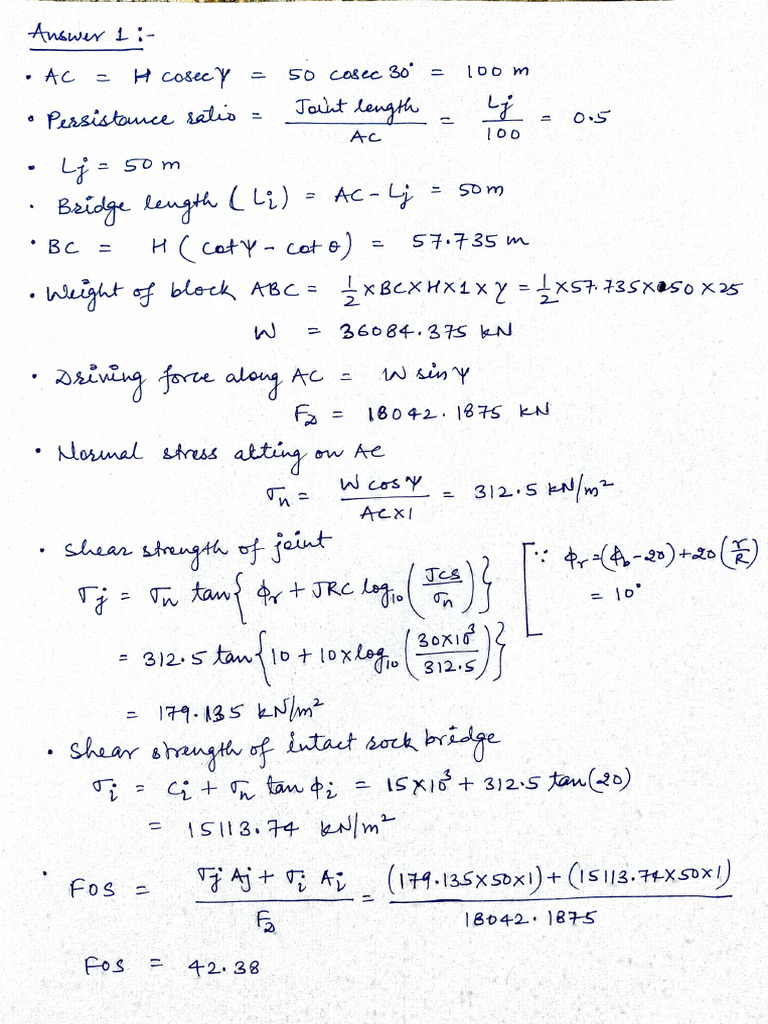 Answer 1 :-
• AC = H cosec ψ = 50 cosec 30° = 100 m
• Persistance ratio = Joint length / AC = Lj / 100 = 0.5
• Lj = 50 m
• Bridge length (Li) = AC - Lj = 50 m
• BC = H (cot ψ - cot θ) = 57.735 m
• Weight of block ABC = 1/2 × BC × H × 1 × γ = 1/2 × 57.735 × 50 × 25
W = 36084.375 kN
• Driving force along AC = W sin ψ
FD = 18042.1875 kN
• Normal stress acting on AC
σn = W cos ψ / AC×1 = 312.5 kN/m²
• Shear strength of joint
τj = σn tan{ϕr + JRC log10 (JCS / σn)} [∵ ϕr = (ϕb - 20) + 20 (r/R)
= 312.5 tan{10 + 10 × log10 (30×10³ / 312.5)} = 10°
= 179.135 kN/m²
• Shear strength of intact rock bridge
τi = ci + σn tan ϕi = 15×10³ + 312.5 tan(20)
= 15113.74 kN/m²
• FOS = τj Aj + τi Ai / FD = (179.135×50×1) + (15113.74×50×1) / 18042.1875
FOS = 42.38